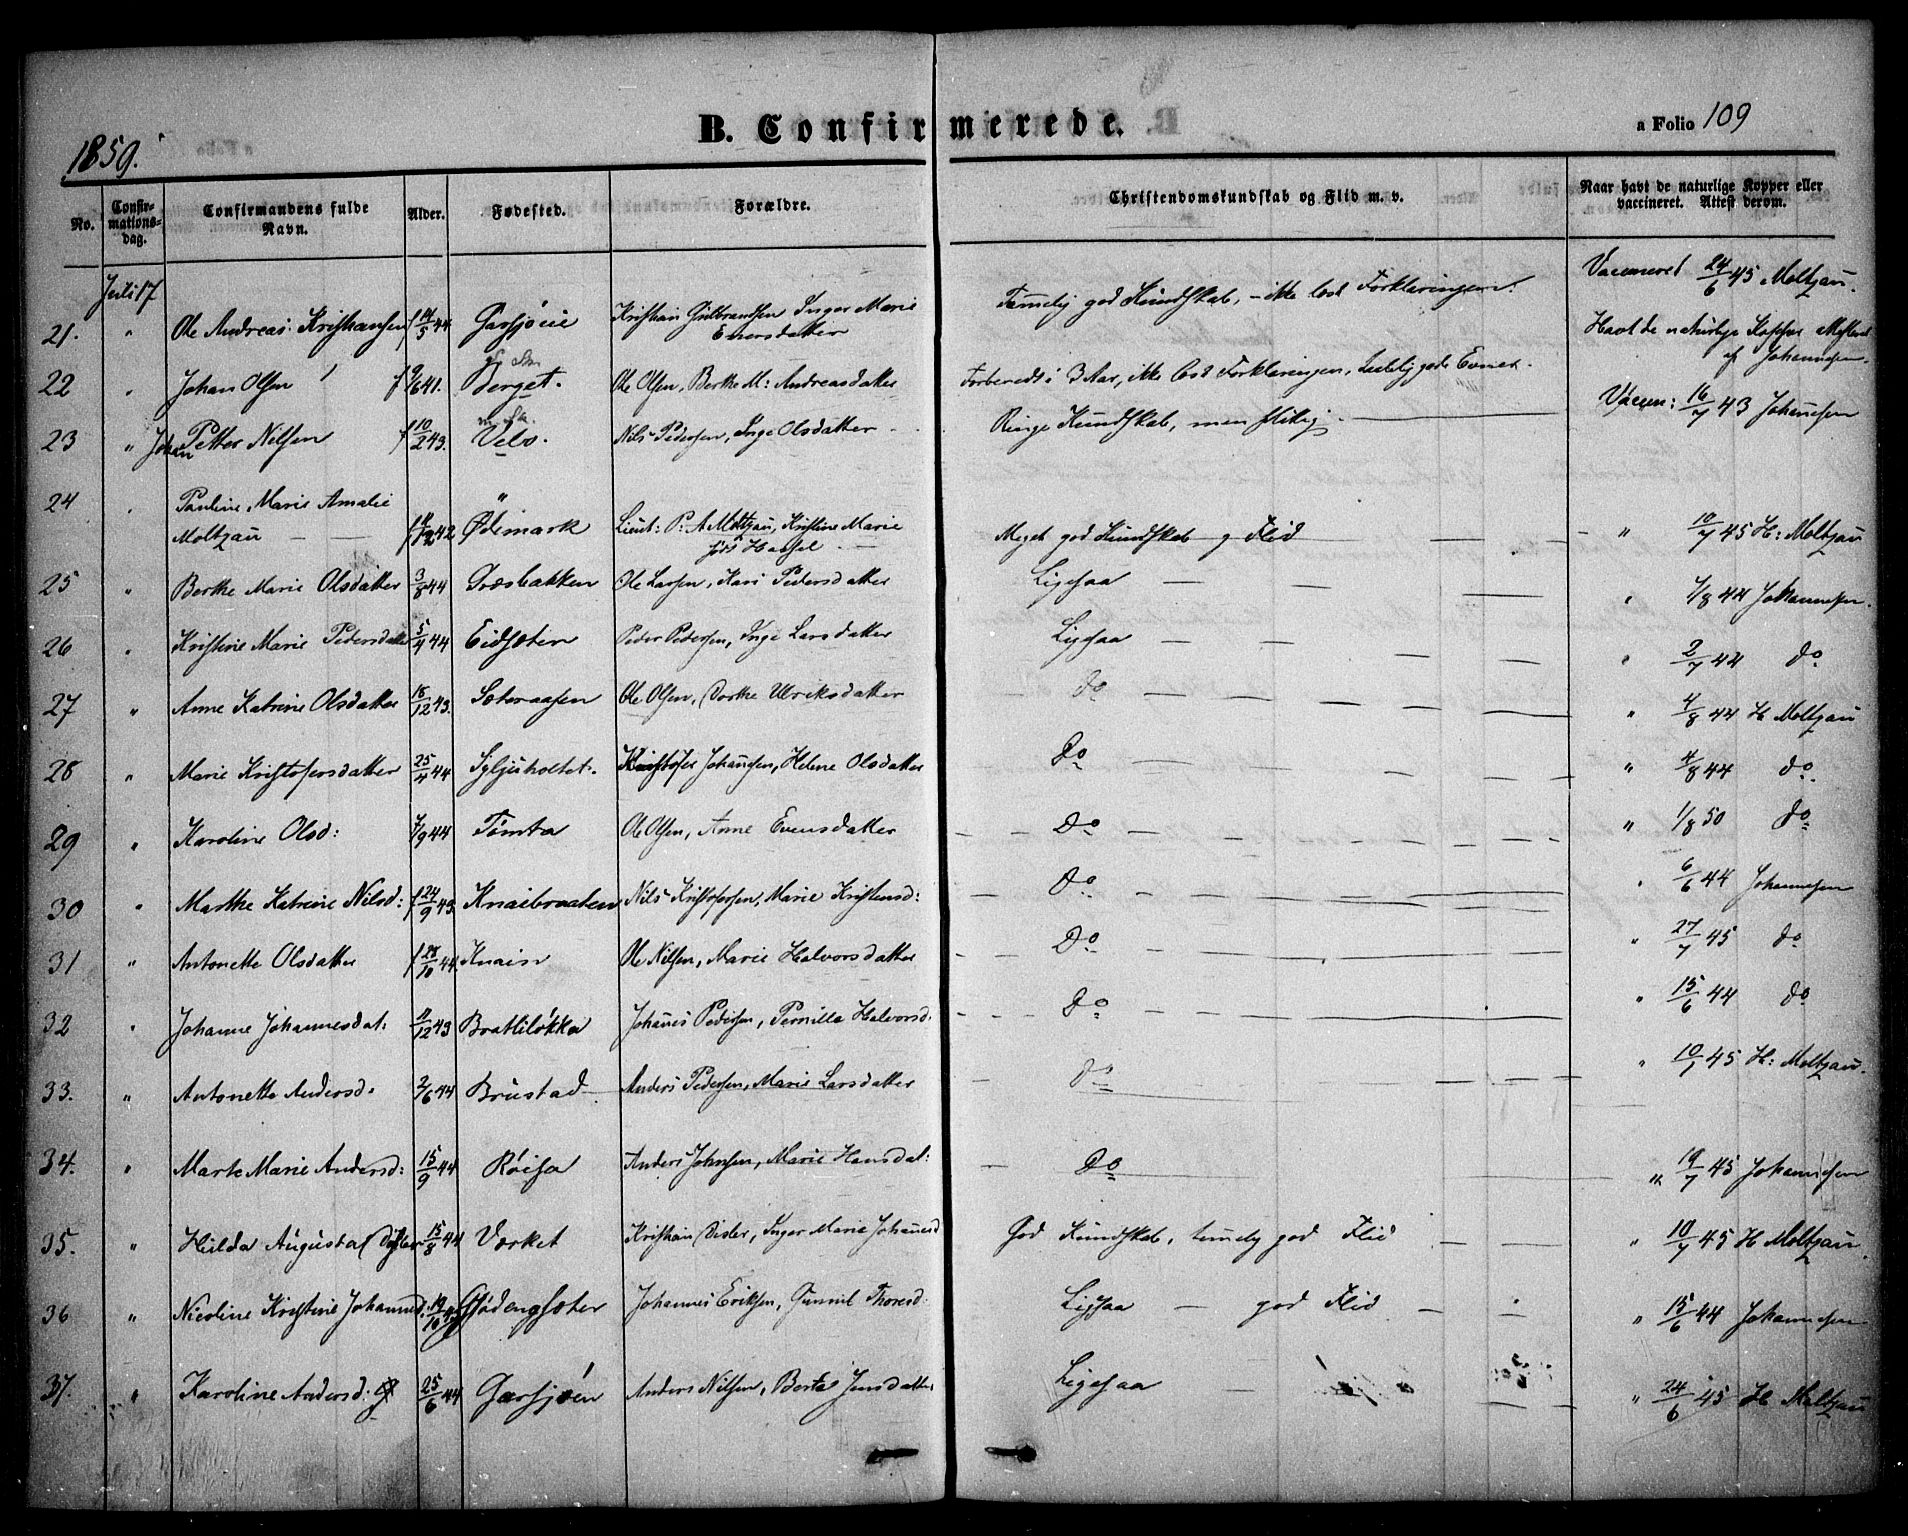 1859.
B. Confirmerede.
a Folio 109
No.
Confir-
mations-
dag.
Confirmandens fulde
Navn.
Alder.
Fødested.
Forældre.
Christendomskundskab og Flid m. v.
Naar havt de naturlige Kopper eller
vaccineret. Attest derom.
Juli 17
21. " Ole Andreas Kristiansen f 14/5 44 Garsjøie Kristian Gulbrandsen Inger Marie Temelig god Kundskab, - ikke læst Forklaringen. Vaccineret 24/6 45 Moltzau.
Enersdatter
22 " Johan Olsen f 9/6 41. Berget. Ole Olsen, Berthe M: Andreasdatter Forberedt i 3 Aar, ikke læst Forklaringen, gode Evner. Havt de naturlige Kopper
af Johannesen.
23 " Johan Petter Nilsen f 10/2 43. Velo. Nils Pedersen, Inge Olsdatter Ringe Kundskab, men flittig. Vaccin: 16/7 43 Johannesen
24 " Pauline Marie Amalie "
Moltzau — — 42 Ødemark Lieut: P: A Moltzau, Kristine Marie Meget god Kundskab og Flid " 10/7 45 H: Moltzau
Hassel
25 " Berthe Marie Olsdatter 3/8 44 Græsbakken Ole Larsen, Kari Pedersdatter Ligesaa " 1/8 44 Johannesen.
26 " Kristine Marie Pedersdatter 5/4 44 Eidsæter Peder Pedersen, Inge Larsdatter Ligesaa " 2/7 44 do
27 " Anne Katrine Olsdatter 18/12 43. Sæteraasen Ole Olsen, Dorthe Ulriksdatter do " 4/8 44 H Moltzau
28 " Marie Kristofersdatter 25/4 44 Syljuholtet. Kristofer Johansen, Helene Olsdatter Do " 4/8 44 do.
29 " Karoline Olsd: 7/9 44 Tømta Ole Olsen, Anne Evensdatter Do " 1/8 50 do
30 " Marthe Katrine Nilsd: f 24/9 43. Knaibraaten Nils Kristofersen, Marie Kristensd: Do " 6/6 44 Johannesen
31 " Antonette Olsdatter f 28/10 44. Knain Ole Nilsen, Marie Halvorsdatter Do " 27/7 45 do
32 " Johanne Johannesdat: 11/12 43 Brattiløkka Johanes Pedersen, Pernille Halvorsd. Do " 15/6 44 do
33. " Antonette Andersd. 2/6 44 Brustad Anders Pedersen, Marie Larsdatter Do " 10/7 45 H: Moltzau.
34. " Marte Marie Andersd: 15/9 44 Røisa Anders Johnsen, Marie Hansdat: Do " 19/7 45 Johannesen
35. " Hilda Augusta Disler 15/8 44 Værket Kristian Disler, Inger Marie Johanesd God Kundskab, temelig god Flid " 10/7 45 H Moltzau.
36 " Nicoline Kristine Johannesd. 19/10 Gjødengsæter Johannes Eriksen, Gunnil Thoresd. Ligesaa — god Flid " 15/6 44 Johannesen
37. " Karoline Andersd. 25/6 44 Garsjøen Anders Nilsen, Berte Jensdatter Ligesaa " 24/6 45 H Moltzau